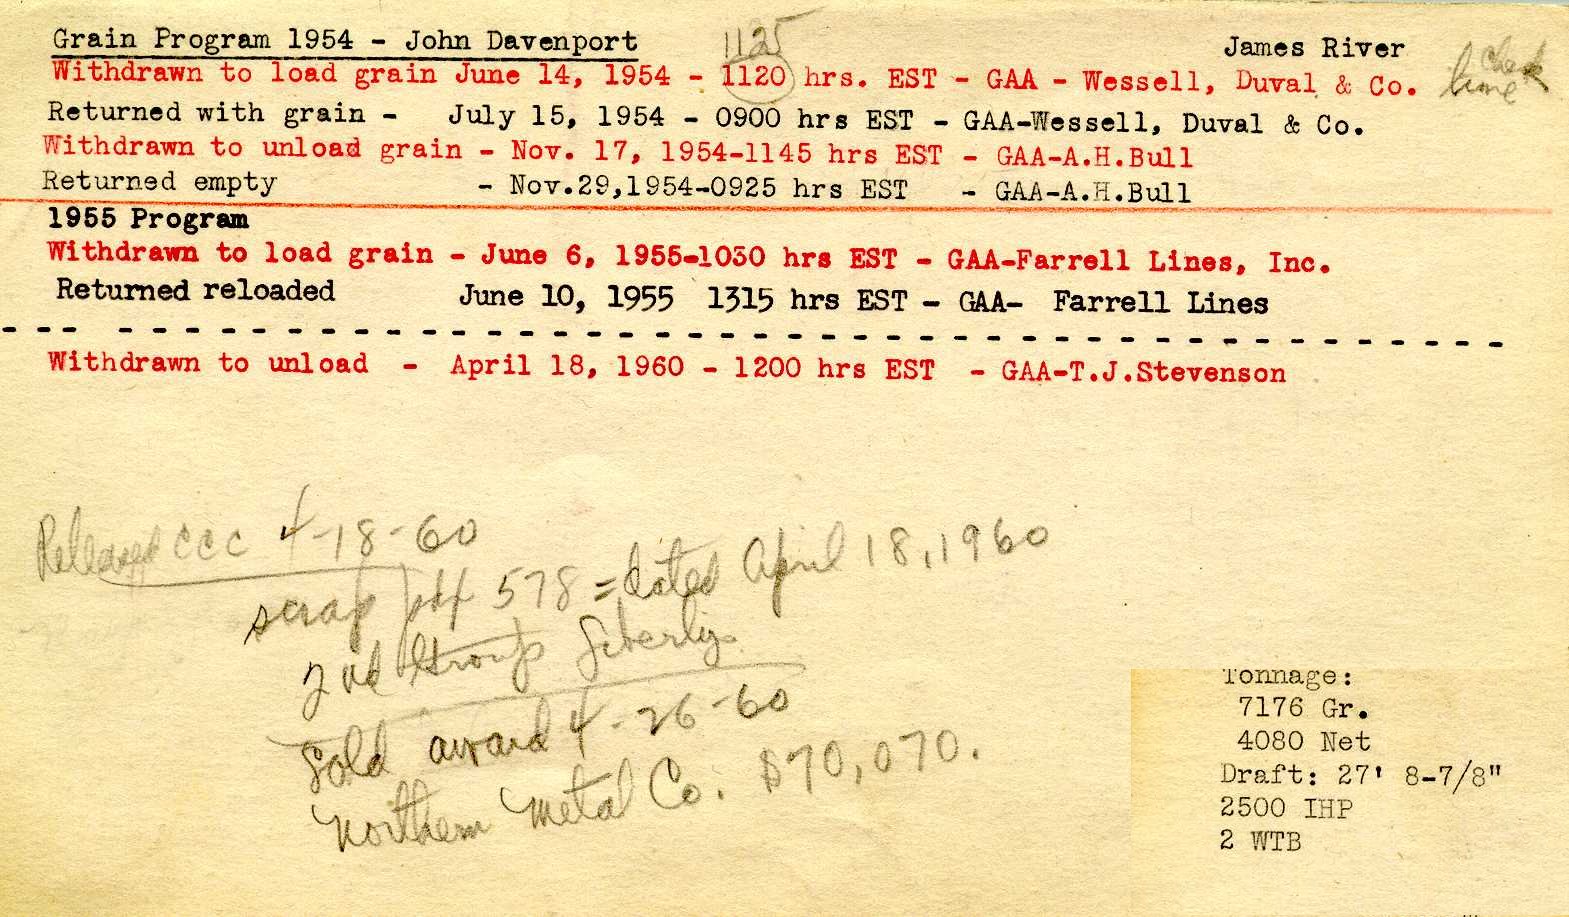 Grain Program 1954 - John Davenport 1125 James River
Withdrawn to load grain June 14, 1954 - 1120 hrs. EST - GAA - Wessell, Duval & Co. check time
Returned with grain - July 15, 1954 - 0900 hrs EST - GAA-Wessell, Duval & Co.
Withdrawn to unload grain - Nov. 17, 1954-1145 hrs EST - GAA-A.H.Bull
Returned empty - Nov.29,1954-0925 hrs EST - GAA-A.H.Bull
1955 Program
Withdrawn to load grain - June 6, 1955-1030 hrs EST - GAA-Farrell Lines, Inc.
Returned reloaded June 10, 1955 1315 hrs EST - GAA- Farrell Lines
Withdrawn to unload - April 18, 1960 - 1200 hrs EST - GAA-T.J.Stevenson
Released CCC 4-18-60
scrap 578 = dated April 18, 1960
2nd Group Liberty.
Sold award 4-26-60
Northern Metal Co. $70,070.
Tonnage:
7176 Gr.
4080 Net
Draft: 27' 8-7/8"
2500 IHP
2 WTB